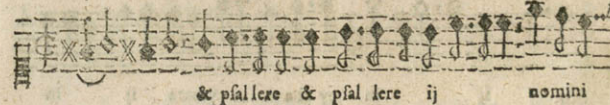 & pſallere & pſallere ij nomini